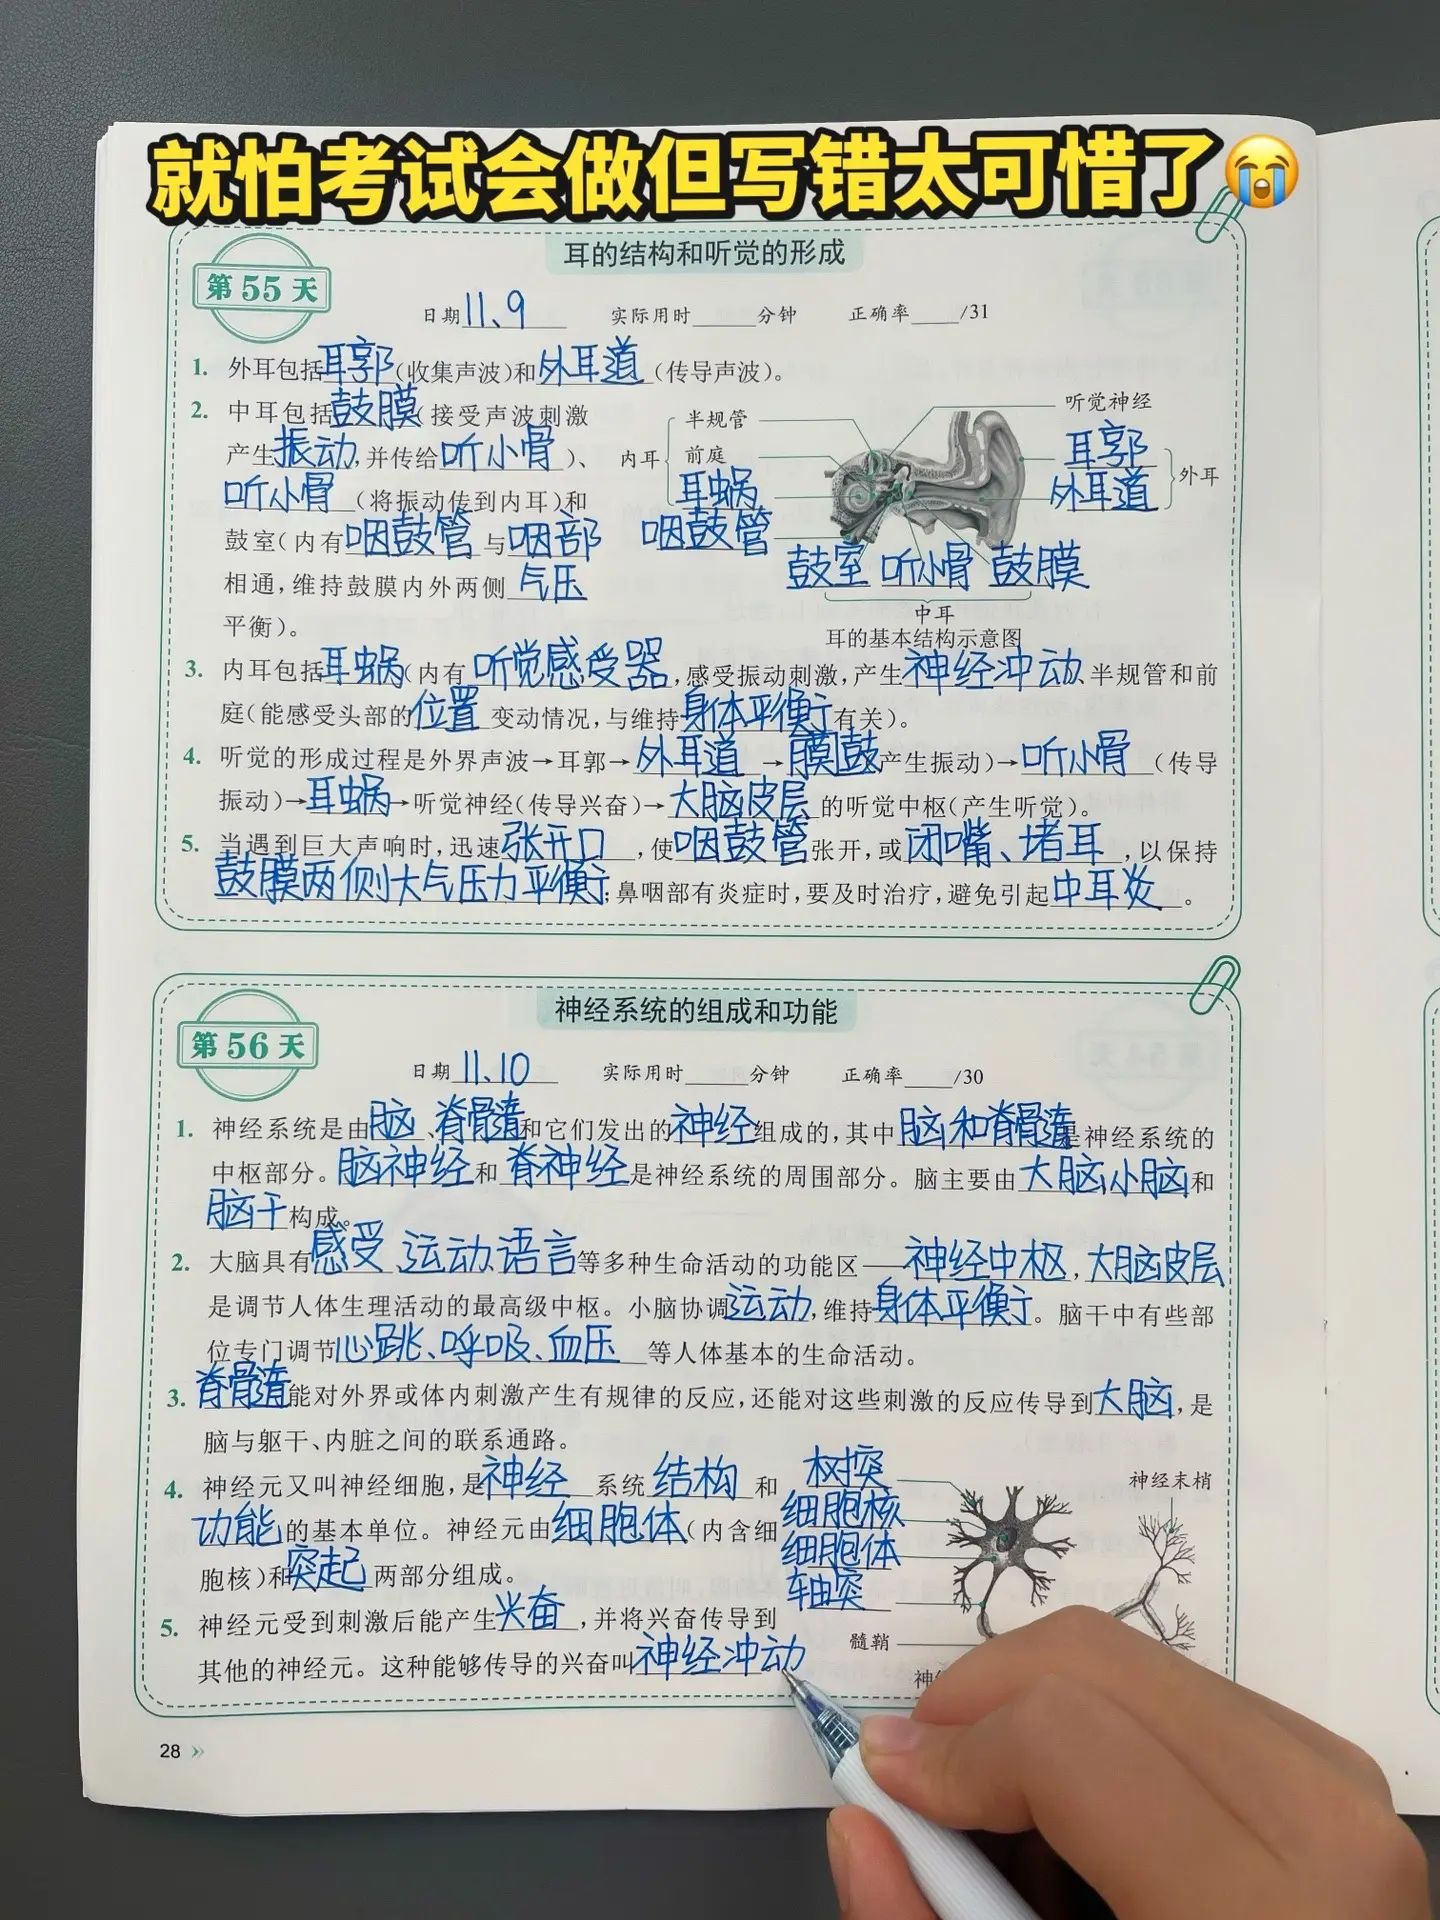 就怕考试会做但写错太可惜了😭
耳的结构和听觉的形成
第 55 天
日期11、9 实际用时____分钟 正确率____/31
1. 外耳包括耳郭(收集声波)和外耳道(传导声波)。
2. 中耳包括鼓膜(接受声波刺激
产生振动,并传给听小骨)、
听小骨(将振动传到内耳)和
鼓室(内有咽鼓管与咽部
相通,维持鼓膜内外两侧气压
平衡)。
内耳 半规管
前庭
耳蜗
咽鼓管
听觉神经
耳郭
外耳道
外耳
鼓室 听小骨 鼓膜
中耳
耳的基本结构示意图
3. 内耳包括耳蜗(内有听觉感受器,感受振动刺激,产生神经冲动、半规管和前
庭(能感受头部的位置变动情况,与维持身体平衡有关)。
4. 听觉的形成过程是外界声波→耳郭→外耳道→膜鼓产生振动)→听小骨(传导
振动)→耳蜗→听觉神经(传导兴奋)→大脑皮层的听觉中枢(产生听觉)。
5. 当遇到巨大声响时,迅速张开口,使咽鼓管张开,或闭嘴、堵耳,以保持
鼓膜两侧大气压力平衡;鼻咽部有炎症时,要及时治疗,避免引起中耳炎。
神经系统的组成和功能
第 56 天
日期11、10 实际用时____分钟 正确率____/30
1. 神经系统是由脑、脊骨髓和它们发出的神经组成的,其中脑和脊骨髓是神经系统的
中枢部分。脑神经和脊神经是神经系统的周围部分。脑主要由大脑、小脑和
脑干构成。
2. 大脑具有感受、运动、语言等多种生命活动的功能区——神经中枢,大脑皮层
是调节人体生理活动的最高级中枢。小脑协调运动,维持身体平衡。脑干中有些部
位专门调节心跳、呼吸、血压等人体基本的生命活动。
3. 脊骨髓能对外界或体内刺激产生有规律的反应,还能对这些刺激的反应传导到大脑,是
脑与躯干、内脏之间的联系通路。
4. 神经元又叫神经细胞,是神经系统结构和
功能的基本单位。神经元由细胞体(内含细
胞核)和突起两部分组成。
5. 神经元受到刺激后能产生兴奋,并将兴奋传导到
其他的神经元。这种能够传导的兴奋叫神经冲动。
树突
细胞核
细胞体
轴突
髓鞘
神经末梢
28